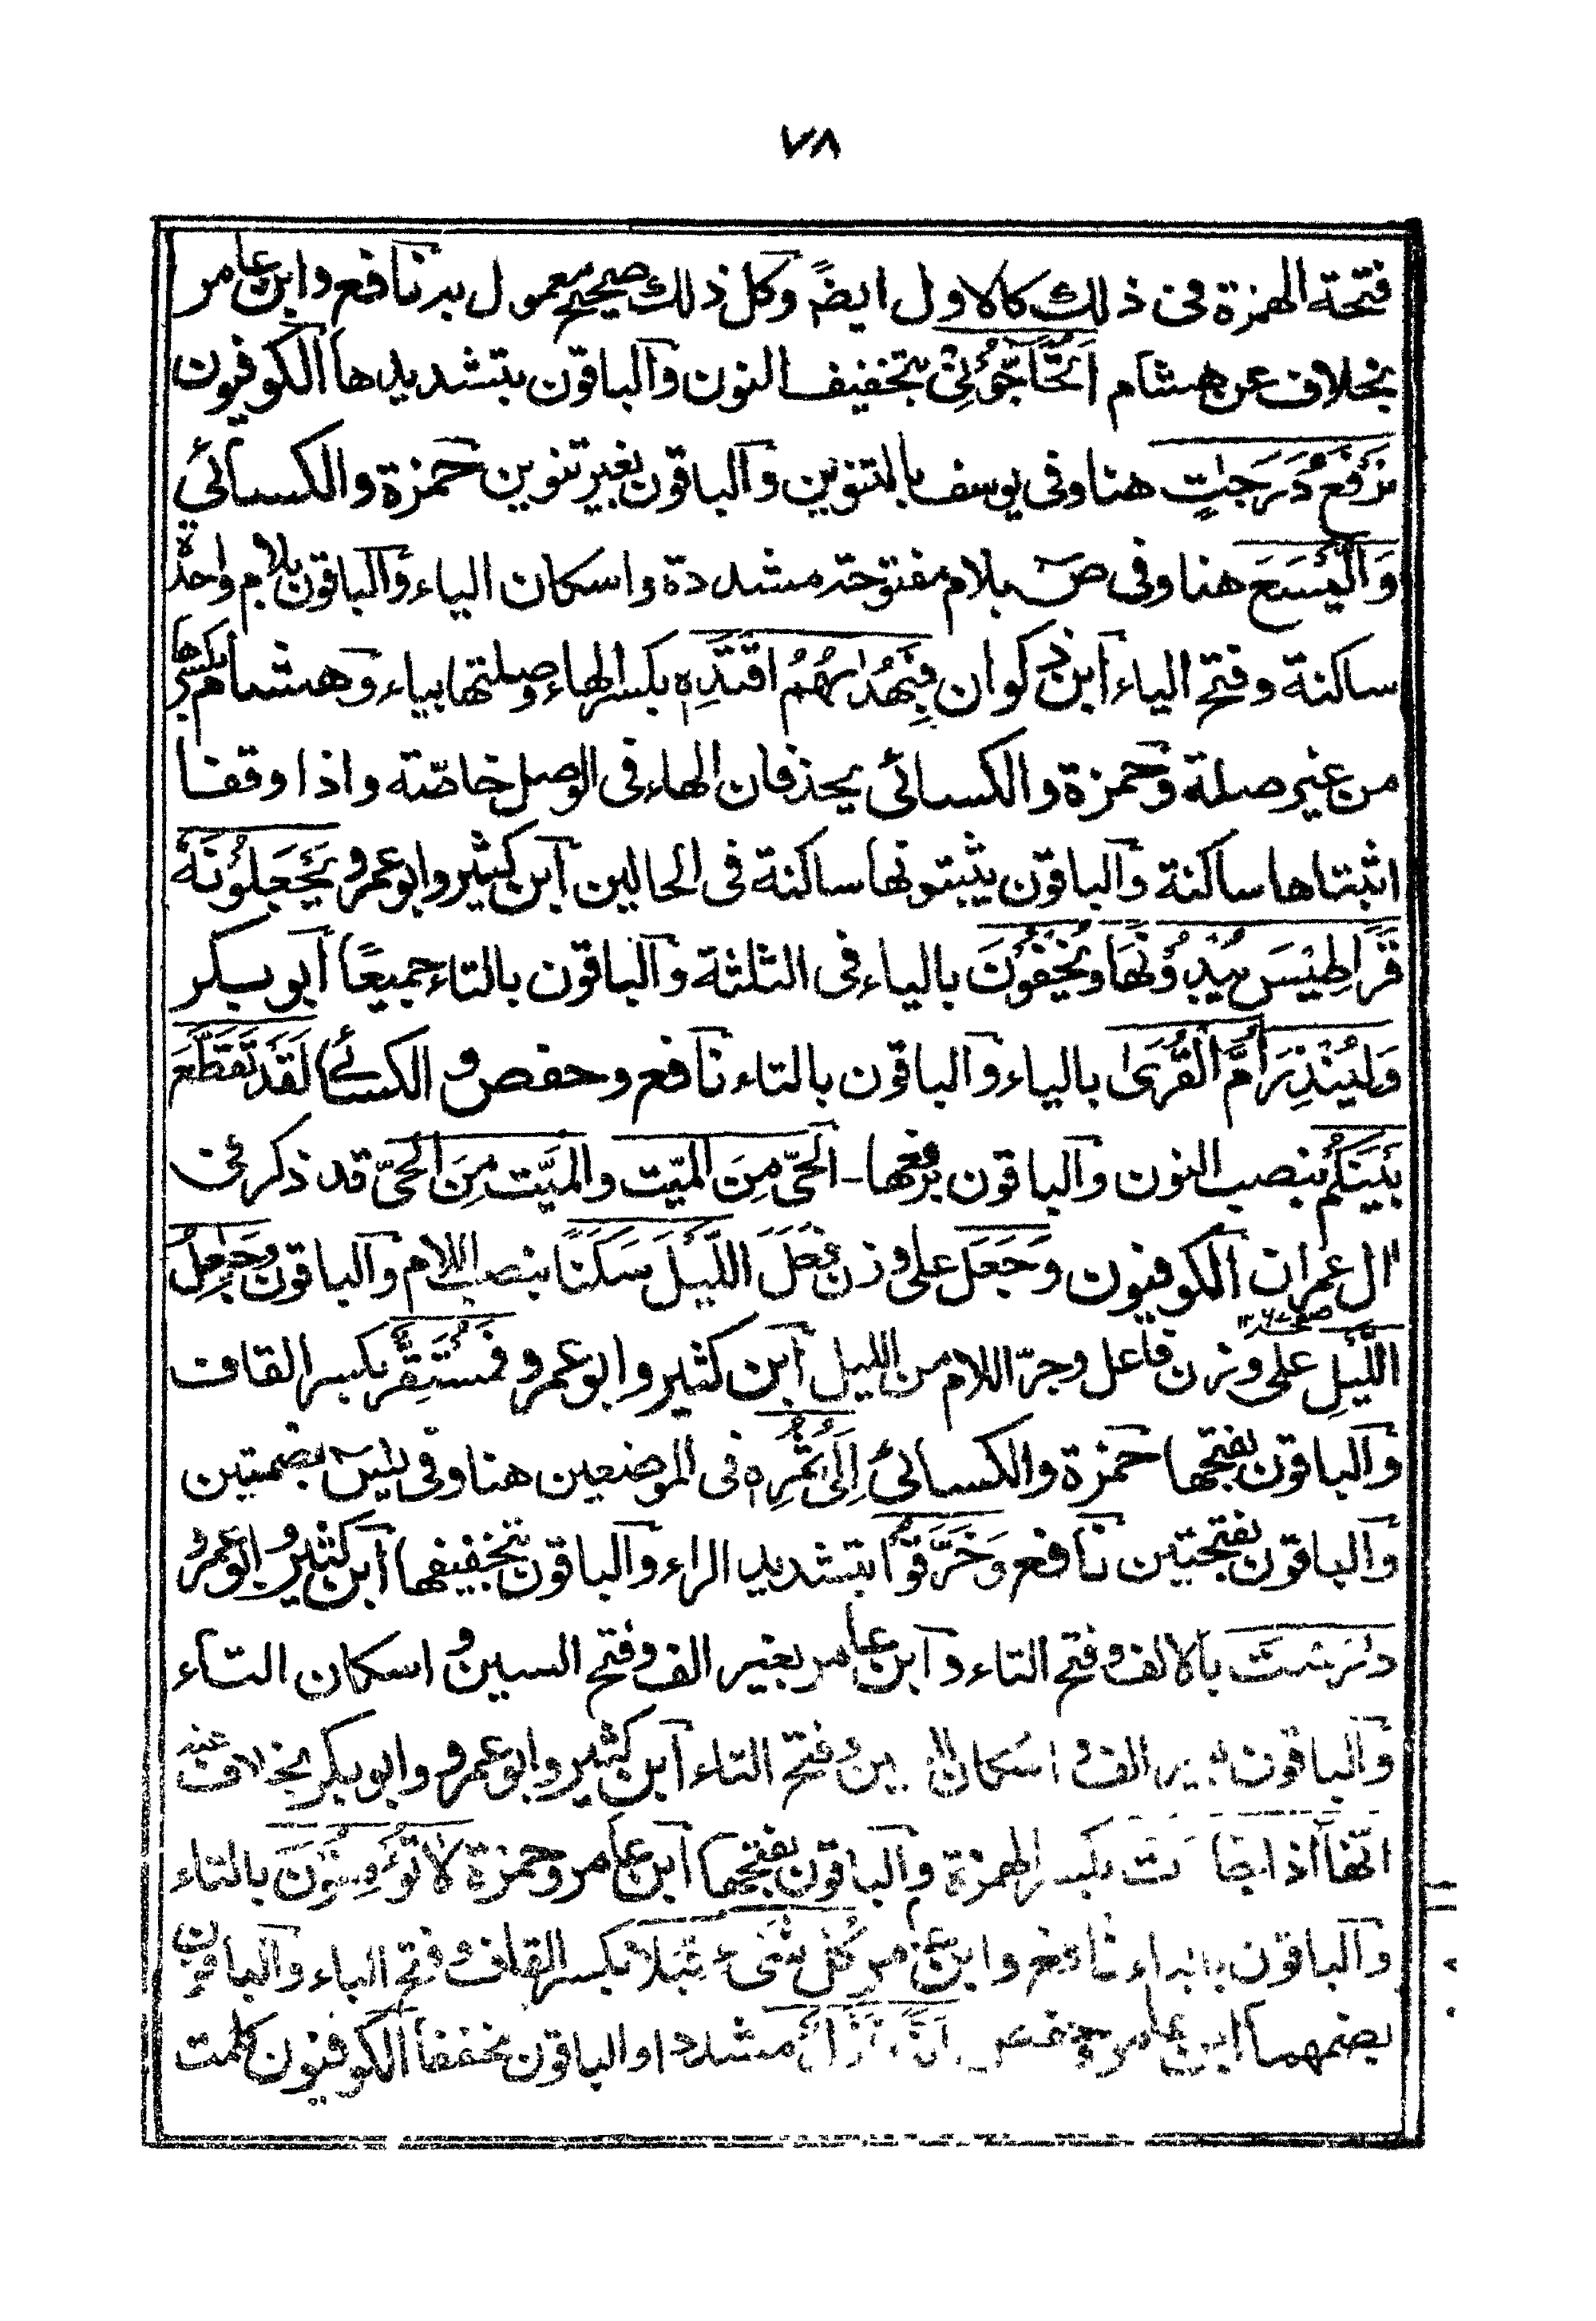 ٧٨
فتحة الهمزة فى ذلك كالاول ايضً وكل ذلك صحيح معمول به نافع وابن عامر
بخلاف عن هشام اَتُحَاجُّوْنِّىْ بتخفيف النون والباقون بتشديدها الكوفيون
نَرْفَعُ دَرَجٰتٍ هنا وفى يوسف بالتنوين والباقون بغير تنوين حمزة والكسائى
وَالْيَسَعَ هنا وفى صٓ بلام مفتوحة مشددة واسكان الياء والباقون بلام واحدة
ساكنة وفتح الياء ابن ذكوان فَبِهُدٰىهُمُ اقْتَدِهٖ بكسر الهاء وصلتها بياء وهشام بكسرها
من غير صلة وحمزة والكسائى يحذفان الهاء فى الوصل خاصّة واذا وقفا
اثبتاها ساكنة والباقون يثبتونها ساكنة فى الحالين ابن كثير وابو عمرو يَجْعَلُوْنَهٗ
قَرَاطِيْسَ يُبْدُوْنَهَا وَيُخْفُوْنَ بالياء فى الثلثة والباقون بالتاء جميعًا ابو بكر
وَلِيُنْذِرَ اُمَّ الْقُرٰى بالياء والباقون بالتاء نافع وحفص و الكسائے لَقَدْ تَقَطَّعَ
بَيْنَكُمْ بنصب النون والباقون برفعها ـ الحَىّ مِنَ المَيّت والمَيَّت مِنَ الحَىّ قد ذكر فى
اٰل عمران الكوفيون وَجَعَلَ على وزن فَعَلَ اللَّيْلَ سَكَنًا بنصب اللام والباقون وَجٰعِلُ
اللَّيْلِ على وزن فاعل وجرّ اللام من الليل ابن كثير وابو عمرو فَمُسْتَقِرٌّ بكسر القاف
والباقون بفتحها حمزة والكسائى اِلٰى ثُمُرِهٖ فى الموضعين هنا وفى يٰسٓ بضمتين
والباقون بفتحتين نافع وَخَرَّقُوْا بتشديد الراء والباقون بتخفيفها ابن كثير وابو عمرو
دٰرَسْتَ بالالف وفتح التاء وابن عامر بغير الف وفتح السين و اسكان التاء
والباقون بغير الف و اسكان السين وفتح التاء ابن كثير وابو عمرو وابو بكر بخلاف عنه
انّها اذا جاءت بكسر الهمزة والباقون بفتحها ابن عامر وحمزة لَا تُؤْمِنُوْنَ بالتاء
والباقون بالياء نافع وابن عامر كُلّ شَىْءٍ قِبَلًا بكسر القاف وفتح الباء والباقون
بضمهما ابن عامر وحفص مشددا والباقون مخففا الكوفيون كلمت